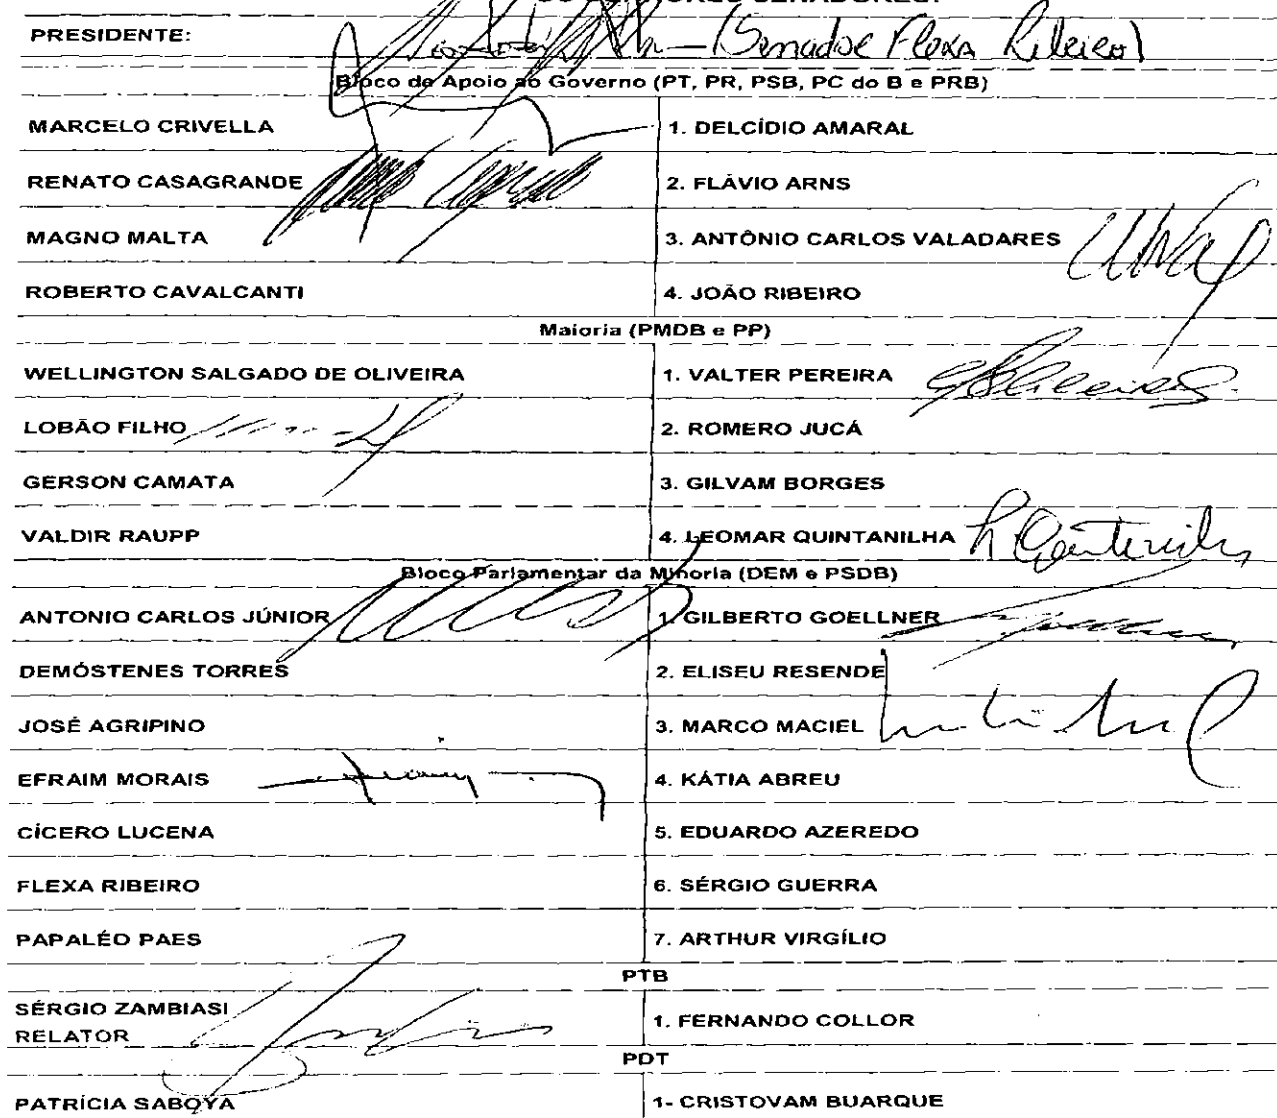 SENADORES:
PRESIDENTE: (Senador Flexa Ribeiro)
Bloco de Apoio ao Governo (PT, PR, PSB, PC do B e PRB)
MARCELO CRIVELLA 1. DELCÍDIO AMARAL
RENATO CASAGRANDE 2. FLÁVIO ARNS
MAGNO MALTA 3. ANTÔNIO CARLOS VALADARES
ROBERTO CAVALCANTI 4. JOÃO RIBEIRO
Maioria (PMDB e PP)
WELLINGTON SALGADO DE OLIVEIRA 1. VALTER PEREIRA
LOBÃO FILHO 2. ROMERO JUCÁ
GERSON CAMATA 3. GILVAM BORGES
VALDIR RAUPP 4. LEOMAR QUINTANILHA
Bloco Parlamentar da Minoria (DEM e PSDB)
ANTONIO CARLOS JÚNIOR 1. GILBERTO GOELLNER
DEMÓSTENES TORRES 2. ELISEU RESENDE
JOSÉ AGRIPINO 3. MARCO MACIEL
EFRAIM MORAIS 4. KÁTIA ABREU
CÍCERO LUCENA 5. EDUARDO AZEREDO
FLEXA RIBEIRO 6. SÉRGIO GUERRA
PAPALÉO PAES 7. ARTHUR VIRGÍLIO
PTB
SÉRGIO ZAMBIASI
RELATOR 1. FERNANDO COLLOR
PDT
PATRÍCIA SABOYA 1- CRISTOVAM BUARQUE